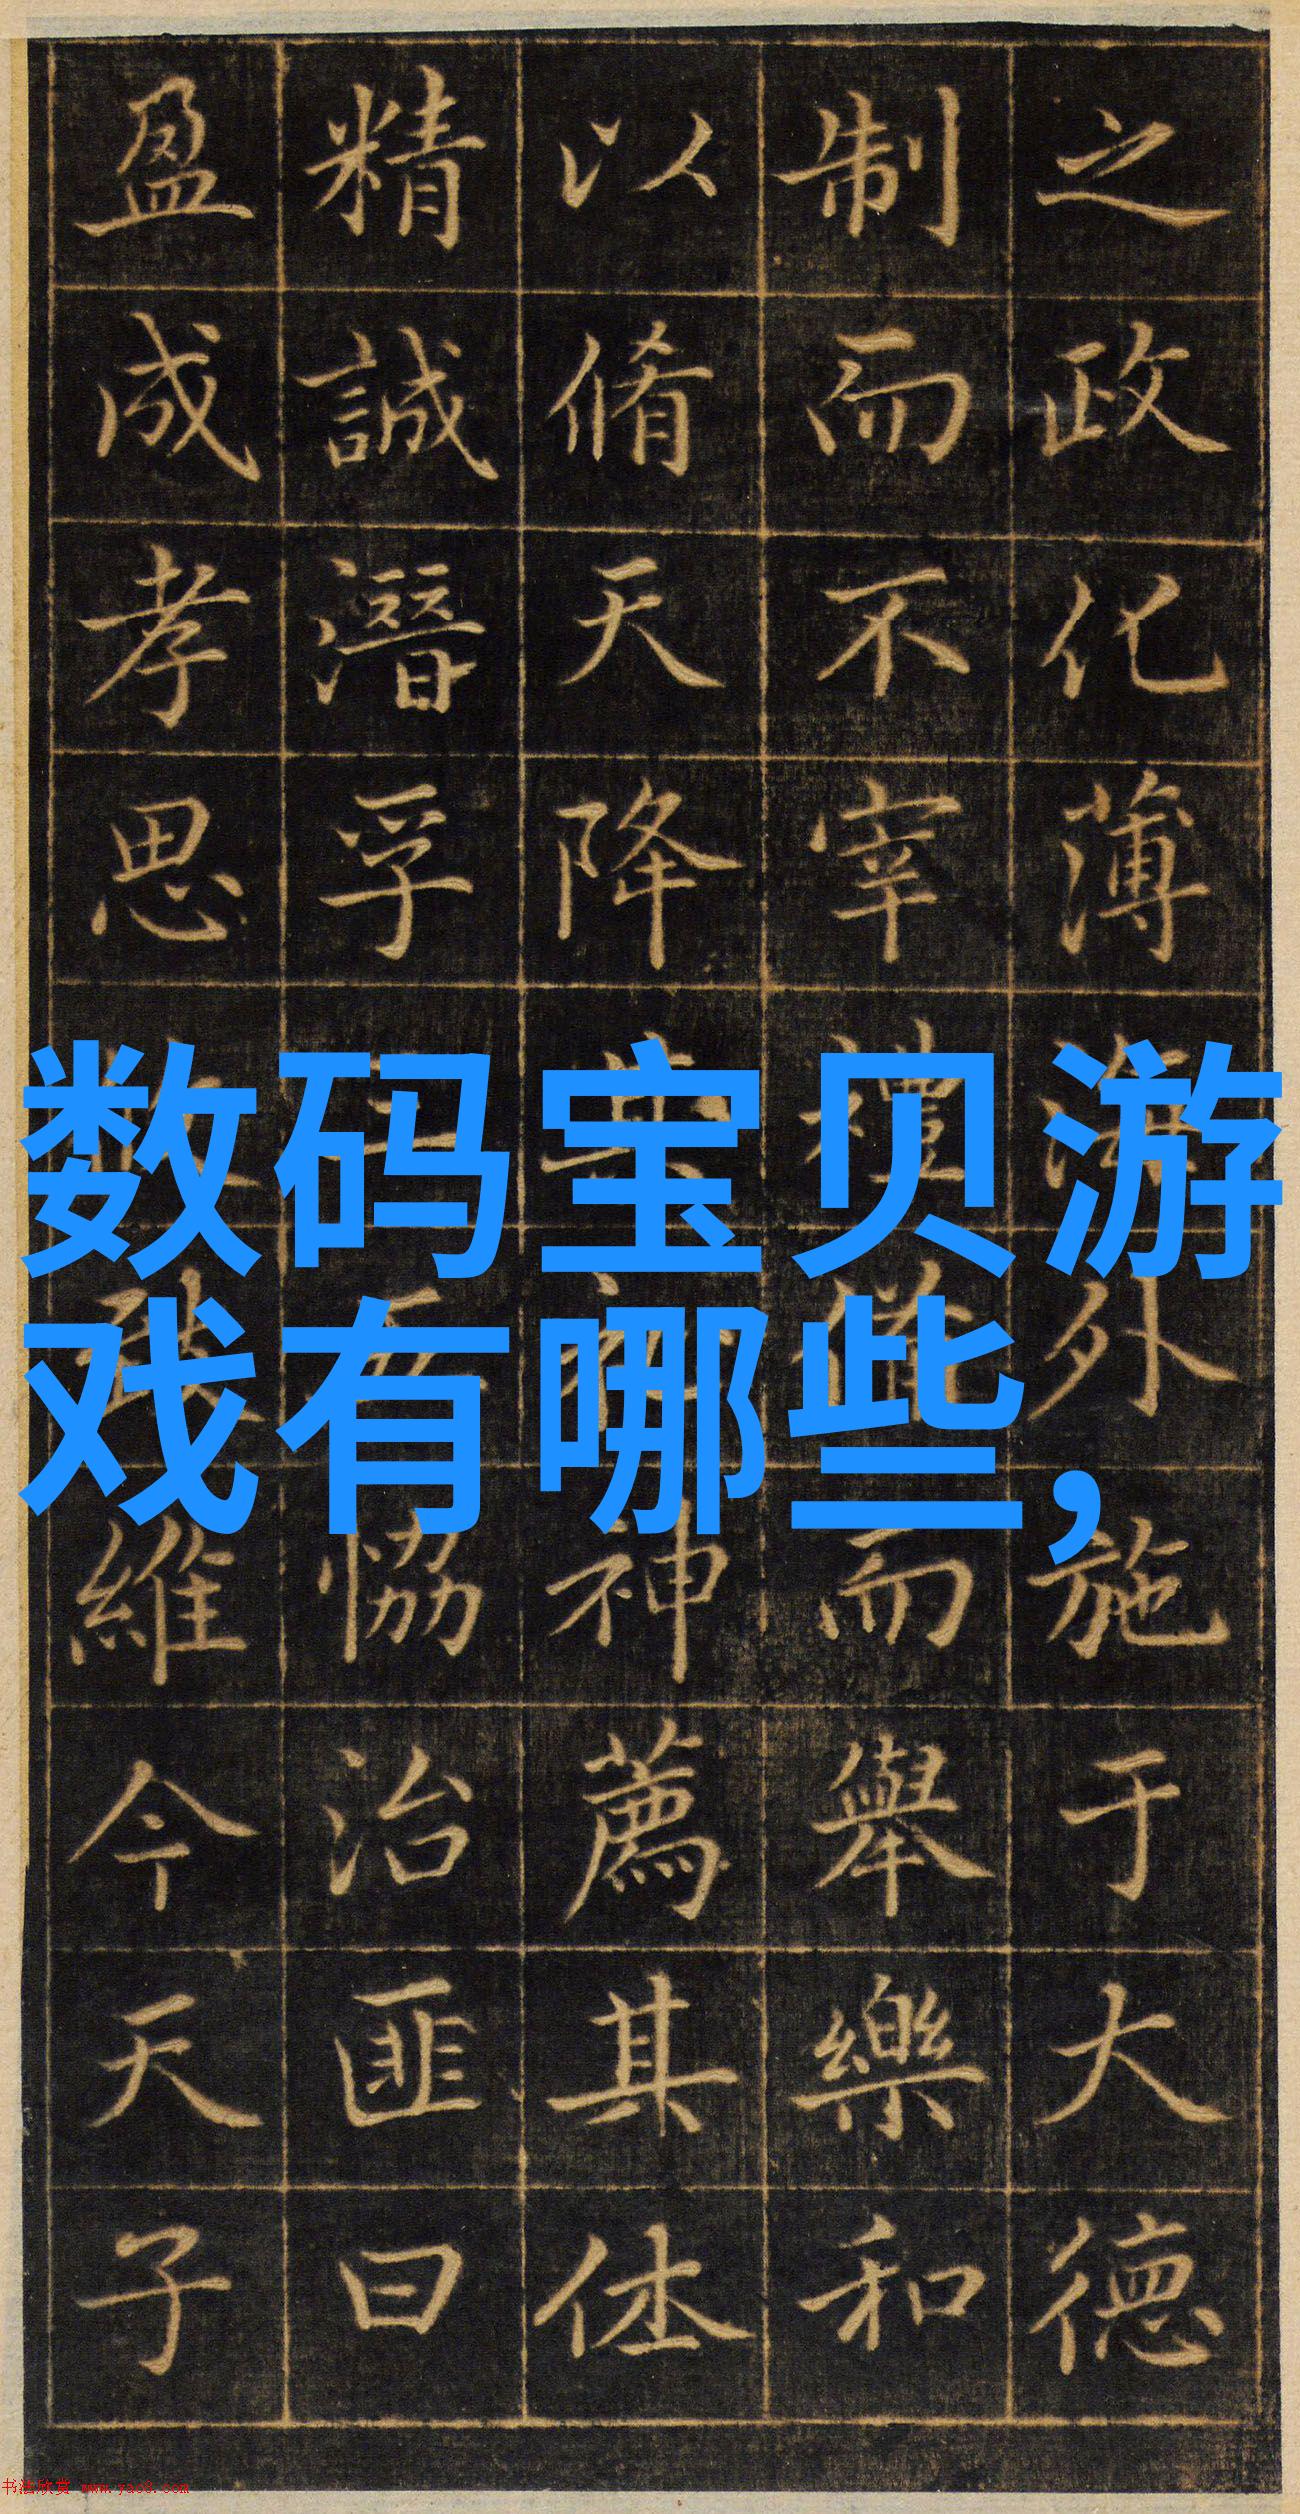 之政化薄海外施于大德
制而不宰禮備而舉樂和
以脩天降其祀神薦其体
精誠潛孚玉女恊治匪曰
盈成孝思維今天子
数码宝贝游
戏有哪些,
书法欣赏 www.yac8.com